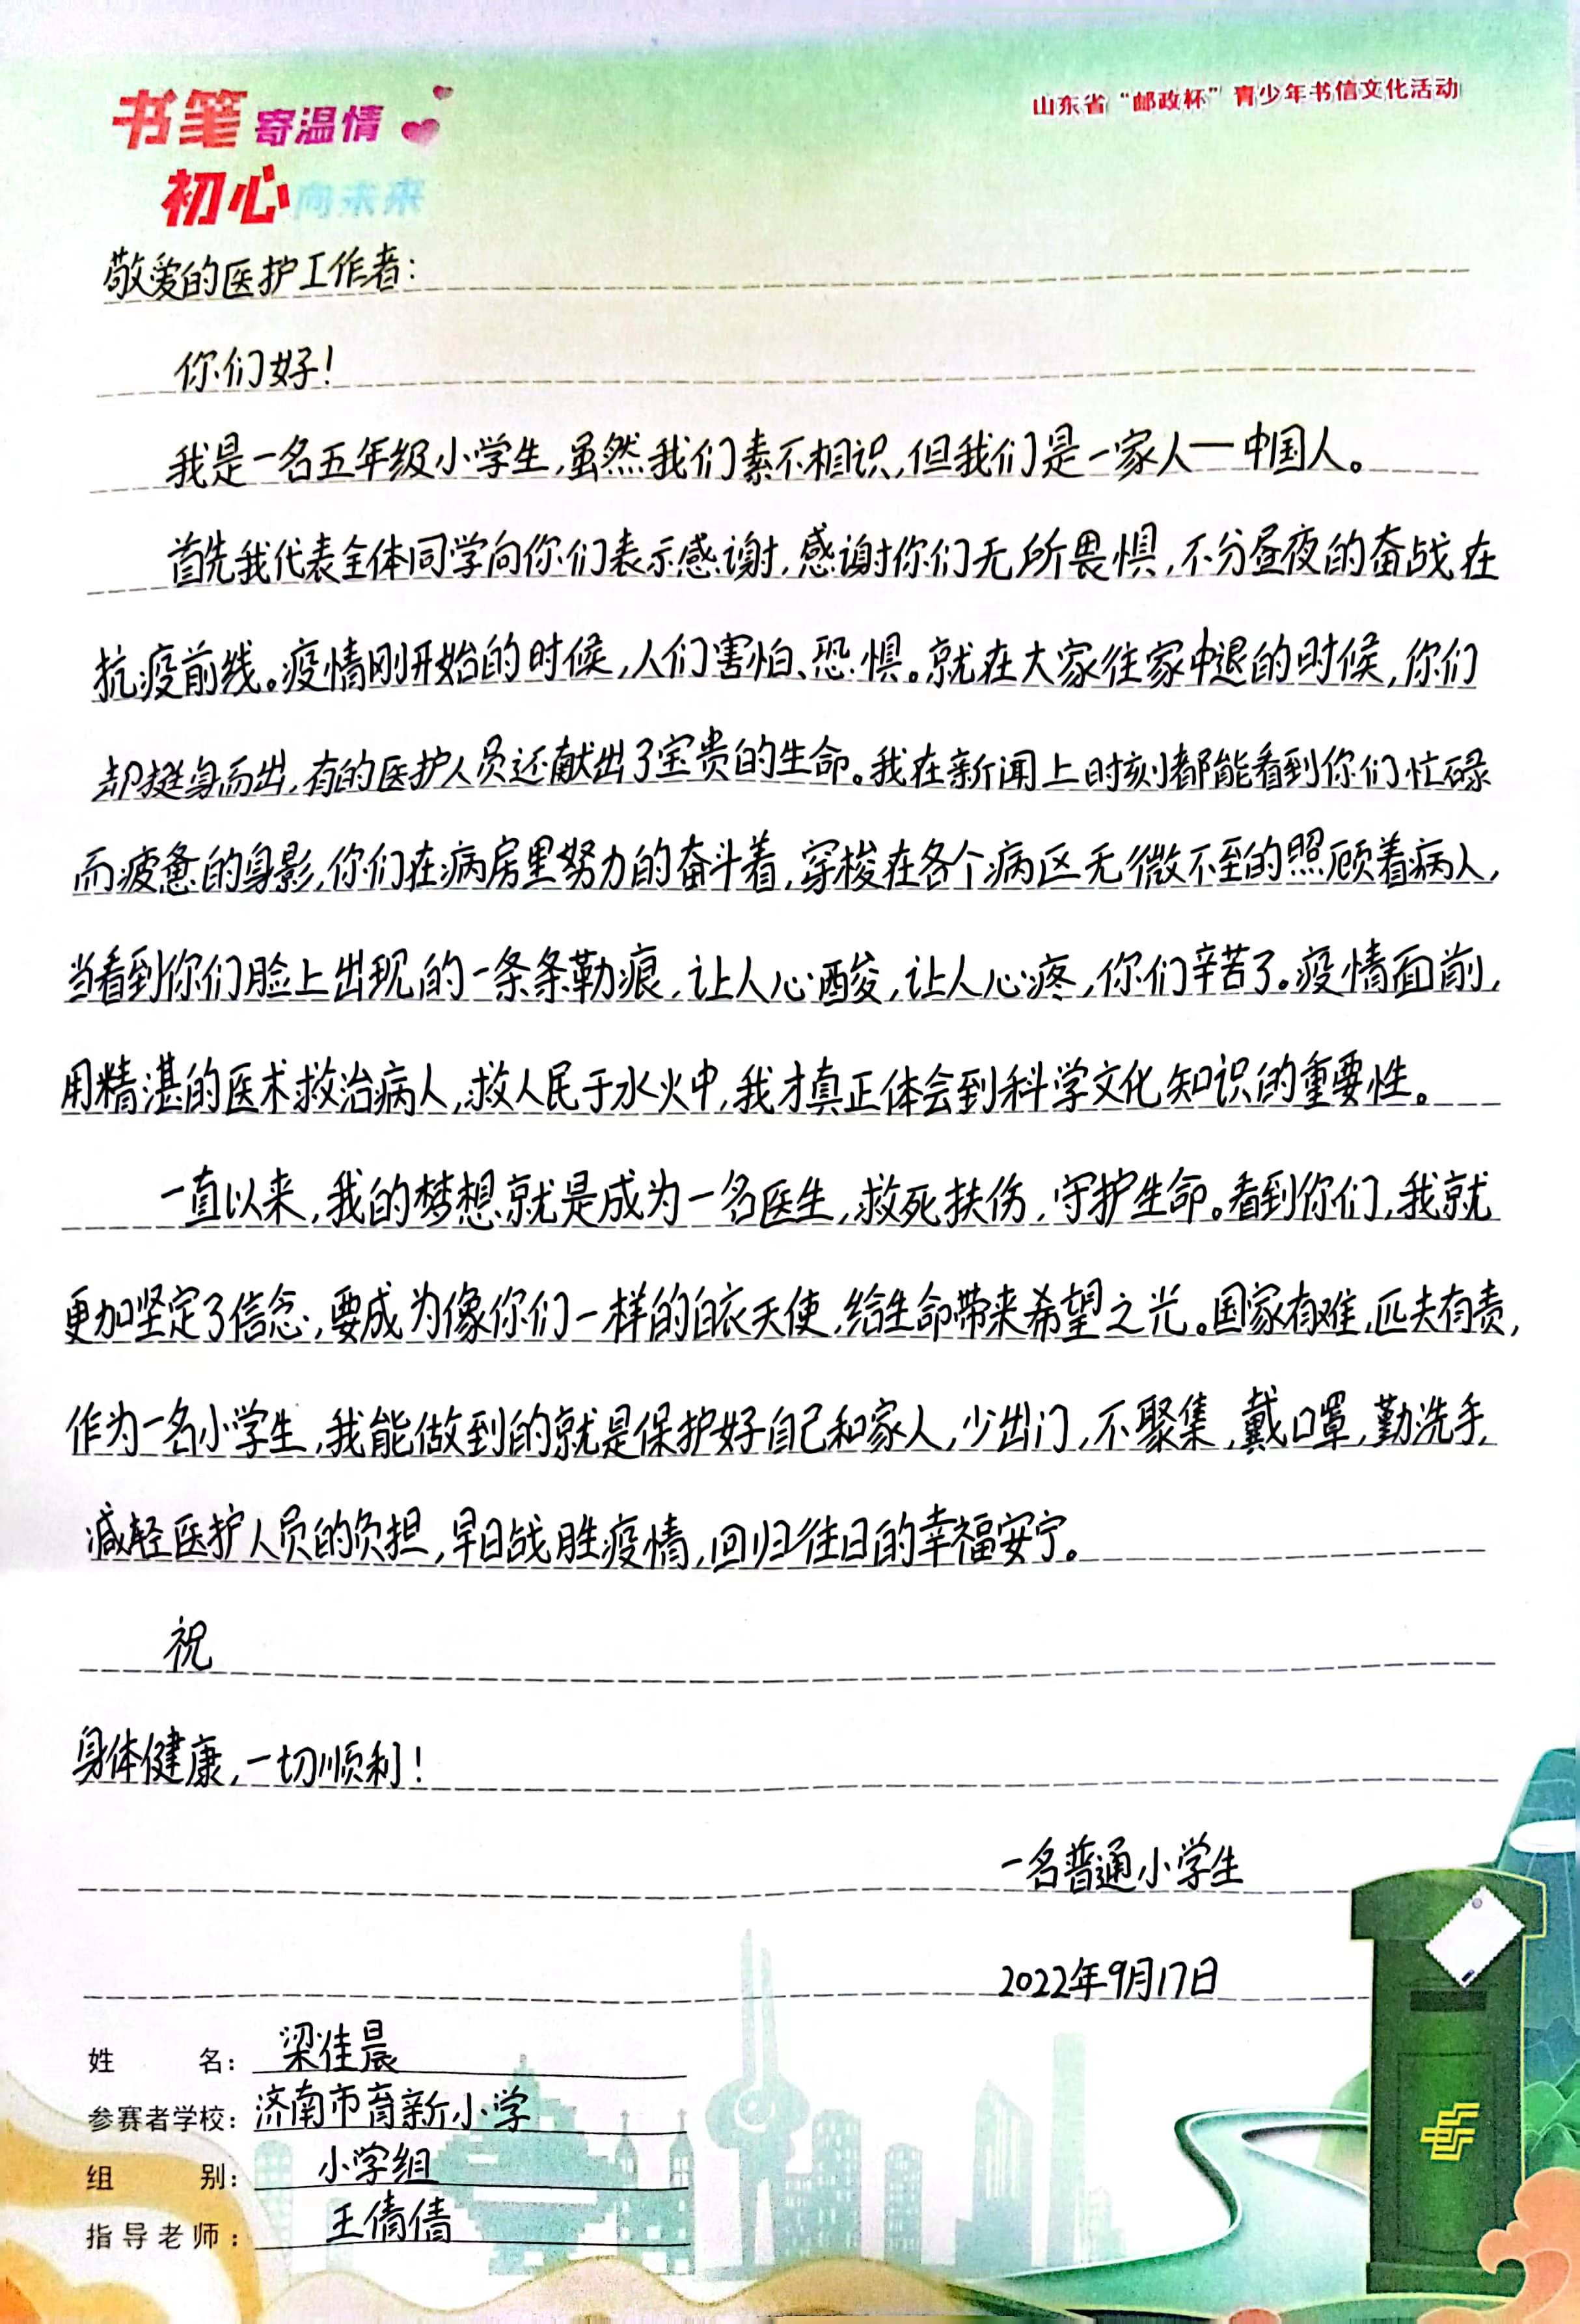 书笔寄温情
初心向未来
山东省“邮政杯”青少年书信文化活动
敬爱的医护工作者：
你们好！
我是一名五年级小学生，虽然我们素不相识，但我们是一家人一中国人。
首先我代表全体同学向你们表示感谢，感谢你们无所畏惧，不分昼夜的奋战在
抗疫前线。疫情刚开始的时候，人们害怕、恐惧。就在大家往家中退的时候，你们
却挺身而出，有的医护人员还献出了宝贵的生命。我在新闻上时刻都能看到你们忙碌
而疲惫的身影，你们在病房里努力的奋斗着，穿梭在各个病区无微不至的照顾着病人，
当看到你们脸上出现的一条条勒痕，让人心酸，让人心疼，你们辛苦了。疫情面前，
用精湛的医术救治病人，救人民于水火中，我才真正体会到科学文化知识的重要性。
一直以来，我的梦想就是成为一名医生，救死扶伤，守护生命。看到你们，我就
更加坚定了信念，要成为像你们一样的白衣天使，给生命带来希望之光。国家有难，匹夫有责，
作为一名小学生，我能做到的就是保护好自己和家人，少出门，不聚集，戴口罩，勤洗手，
减轻医护人员的负担，早日战胜疫情，回归往日的幸福安宁。
祝
身体健康，一切顺利！
一名普通小学生
2022年9月17日
姓名：梁佳晨
参赛者学校：济南市育新小学
组别：小学组
指导老师：王倩倩